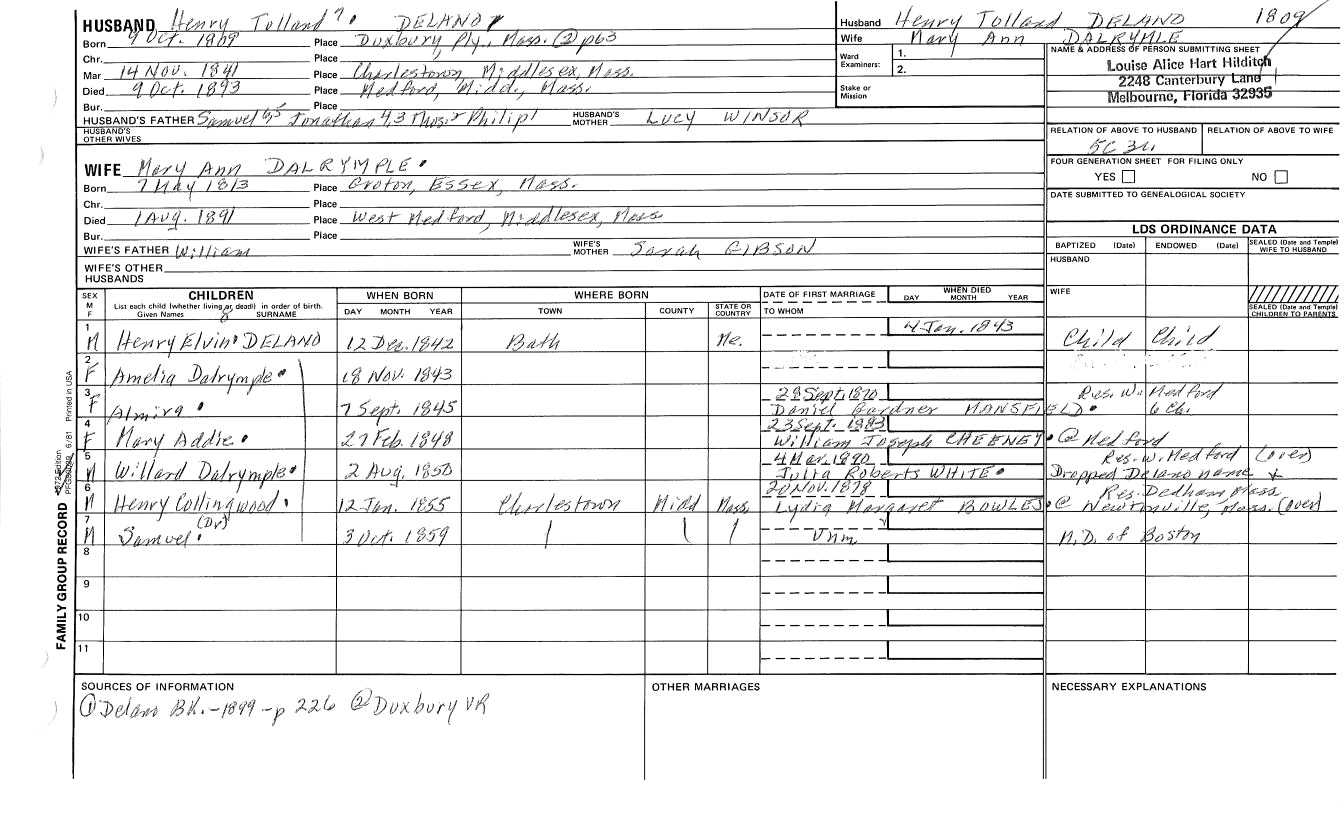 HUSBAND Henry Tolland DELANO
Born 9 Oct. 1809 Place Duxbury, Ply., Mass. ② p63
Chr. Place
Mar 14 Nov. 1841 Place Charlestown, Middlesex, Mass.
Died 9 Oct. 1893 Place Medford, Midd., Mass.
Bur. Place
HUSBAND'S FATHER Samuel Jonathan 4,3 Thos. 2 Philip 1 HUSBAND'S MOTHER LUCY WINSOR
HUSBAND'S OTHER WIVES
WIFE Mary Ann DALRYMPLE
Born 7 May 1813 Place Groton, Essex, Mass.
Chr. Place
Died 1 Aug. 1891 Place West Medford, Middlesex, Mass
Bur. Place
WIFE'S FATHER William WIFE'S MOTHER Sarah GIBSON
WIFE'S OTHER HUSBANDS
Husband Henry Tolland DELANO 1809
Wife Mary Ann DALRYMLE
Ward Examiners: 1.
2.
Stake or Mission
NAME & ADDRESS OF PERSON SUBMITTING SHEET
Louise Alice Hart Hilditch
2248 Canterbury Lane
Melbourne, Florida 32935
RELATION OF ABOVE TO HUSBAND RELATION OF ABOVE TO WIFE
5C 3r.
FOUR GENERATION SHEET FOR FILING ONLY
YES NO
DATE SUBMITTED TO GENEALOGICAL SOCIETY
LDS ORDINANCE DATA
BAPTIZED (Date) ENDOWED (Date) SEALED (Date and Temple) WIFE TO HUSBAND
HUSBAND
WIFE
SEALED (Date and Temple) CHILDREN TO PARENTS
SEX M F CHILDREN WHEN BORN WHERE BORN DATE OF FIRST MARRIAGE WHEN DIED
List each child (whether living or dead) in order of birth.
Given Names SURNAME DAY MONTH YEAR TOWN COUNTY STATE OR COUNTRY TO WHOM DAY MONTH YEAR
8
1 M Henry Elvin DELANO 12 Dec. 1842 Bath Me. 4 Jan. 1843 Child Child
2 F Amelia Dalrymple 18 Nov. 1843
3 F Almira 7 Sept. 1845 28 Sept. 1870 Res. W. Medford
Daniel Gardner MANSFIELD 6 Ch.
4 F Mary Addie 27 Feb. 1848 23 Sept. 1883
William Joseph CHEENEY @ Medford
5 M Willard Dalrymple 2 Aug. 1850 4 Mar. 1890 Res. W. Medford (over)
Julia Roberts WHITE Dropped Delano name +
6 M Henry Collingwood 12 Jan. 1855 Charlestown Midd Mass. 20 Nov. 1878 Res. Dedham, Mass
Lydia Margaret BOWLES @ Newtonville, Mass. (over)
7 M Samuel (Dr) 3 Oct. 1859 Unm M.D. of Boston
8
9
10
11
FAMILY GROUP RECORD
6/81 Printed in USA
SOURCES OF INFORMATION
① Delano BK.-1899-p 226 ② Duxbury VR
OTHER MARRIAGES
NECESSARY EXPLANATIONS